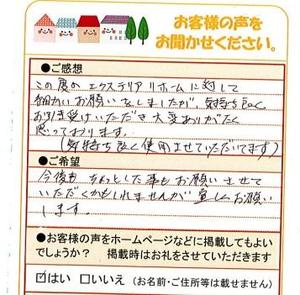 お客様の声を
お聞かせください。
●ご感想
この度のエクステリアリホームに対して
細かいお願いをしましたが、気持ち良く
お引き受けいただき大変ありがたく
思っております。
(気持ち良く使用させていただいてます)
●ご希望
今後も ちょっとした事もお願いさせて
いただくかもしれませんが宜しくお願い
します。
●お客様の声をホームページなどに掲載してもよい
でしょうか? 掲載時はお礼をさせていただきます
☑はい □いいえ (お名前・ご住所等は載せません)